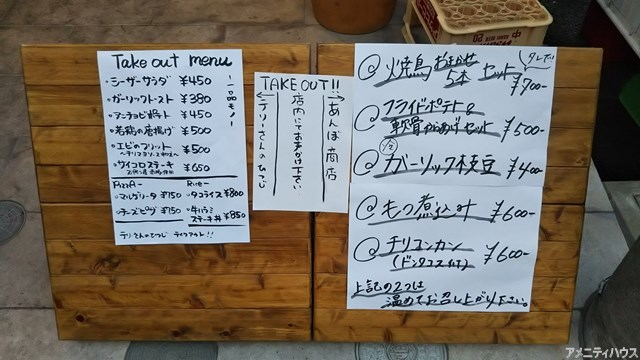 Take out menu
～一品モノ～
・シーザーサラダ ¥450
・ガーリックトースト ¥380
・アンチョビポテト ¥450
・若鶏の唐揚げ ¥500
・エビのフリット ¥500
・サイコロステーキ ¥650
Pizza~
・マルゲリータ ¥750
・チーズピザ ¥750
Rice~
・タコライス ¥800
・牛ハラミステーキ丼 ¥850
テリーさんのひつじ テイクアウト!!
TAKE OUT!!
あんば商店→
店内にてお声がけ下さい
←テリーさんのひつじ
@焼鳥おまかせ5本セット(タレorシオ) ¥700-
@フライドポテト&
軟骨からあげセット ¥500-
@ガーリック枝豆 ¥400-
@もつ煮込み ¥600-
@チリコンカン ¥600-
(ドンタコス付)
上記の2つは
温めてお召し上がり下さい。
アメニティハウス